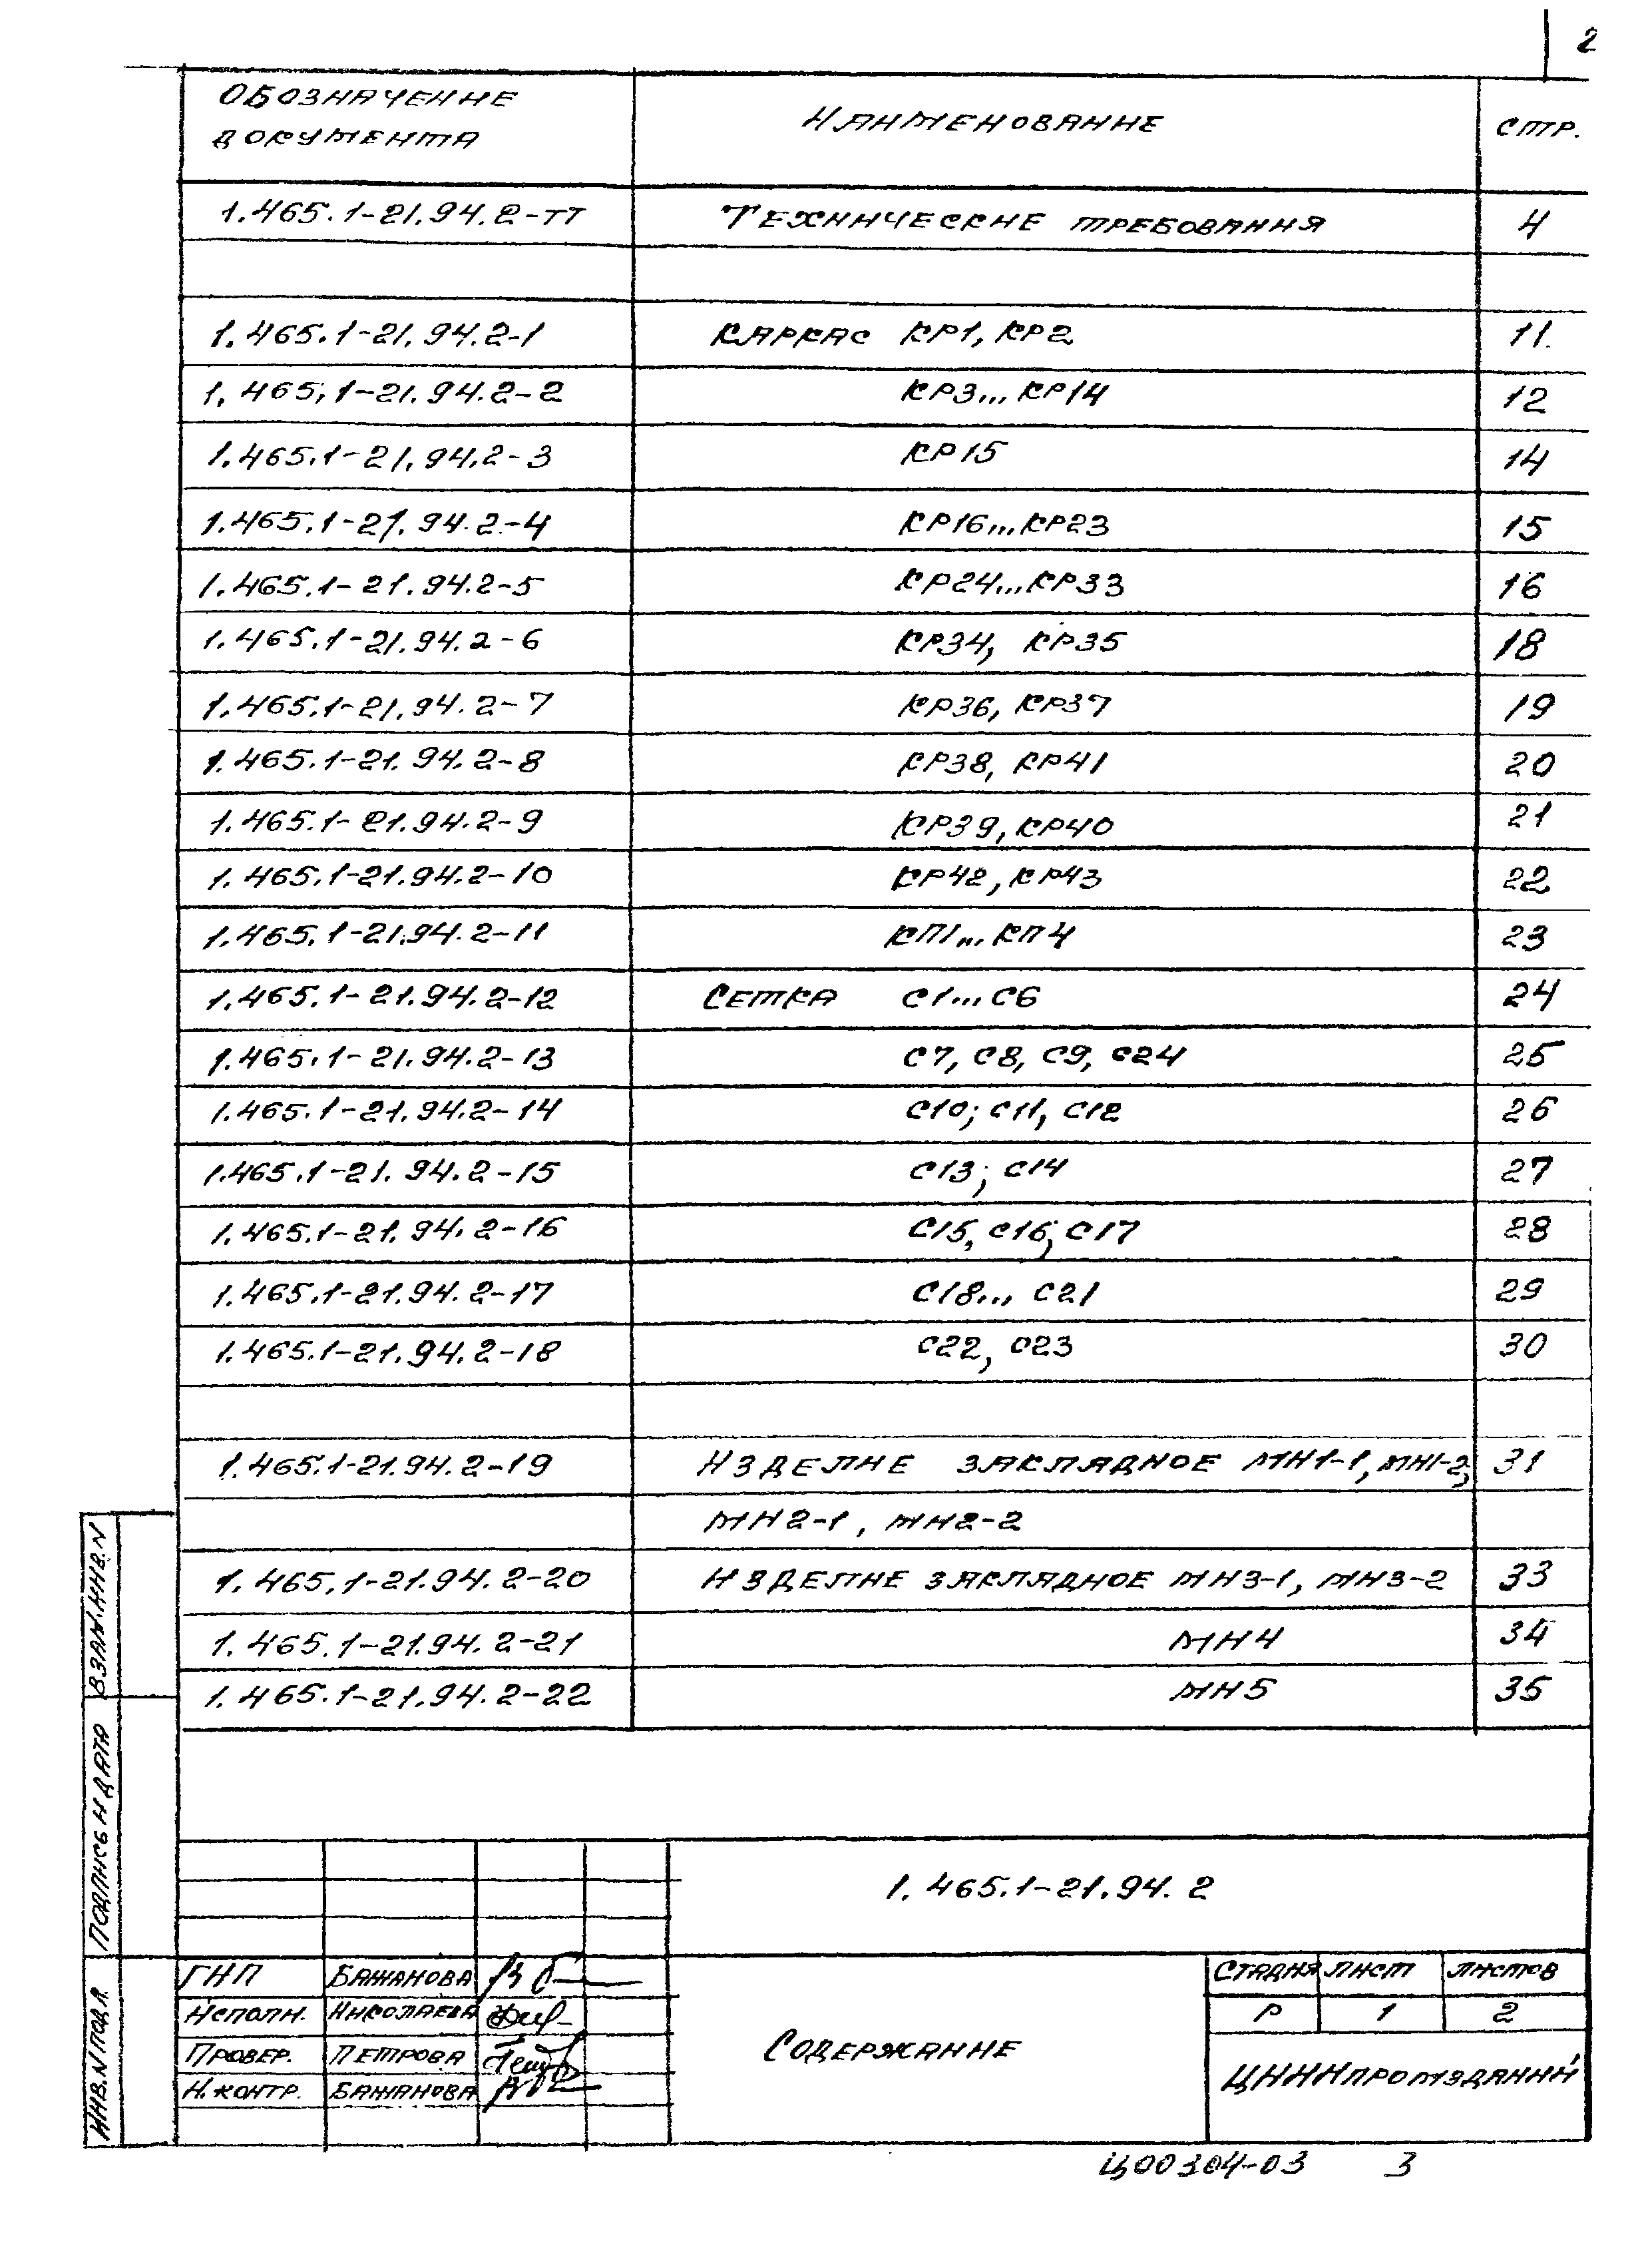 2
Обозначение документа Наименование Стр.
1.465.1-21.94.2-ТТ Технические требования 4
1.465.1-21.94.2-1 Каркас КР1, КР2 11
1.465.1-21.94.2-2 КР3...КР14 12
1.465.1-21.94.2-3 КР15 14
1.465.1-21.94.2-4 КР16...КР23 15
1.465.1-21.94.2-5 КР24...КР33 16
1.465.1-21.94.2-6 КР34, КР35 18
1.465.1-21.94.2-7 КР36, КР37 19
1.465.1-21.94.2-8 КР38, КР41 20
1.465.1-21.94.2-9 КР39, КР40 21
1.465.1-21.94.2-10 КР42, КР43 22
1.465.1-21.94.2-11 КП1...КП4 23
1.465.1-21.94.2-12 Сетка С1...С6 24
1.465.1-21.94.2-13 С7, С8, С9, С24 25
1.465.1-21.94.2-14 С10; С11, С12 26
1.465.1-21.94.2-15 С13; С14 27
1.465.1-21.94.2-16 С15, С16; С17 28
1.465.1-21.94.2-17 С18... С21 29
1.465.1-21.94.2-18 С22, С23 30
1.465.1-21.94.2-19 Изделие закладное МН1-1, МН1-2, 31
МН2-1, МН2-2
1.465.1-21.94.2-20 Изделие закладное МН3-1, МН3-2 33
1.465.1-21.94.2-21 МН4 34
1.465.1-21.94.2-22 МН5 35
Взам.инв.N
Подпись и дата
Инв.N подл.
1.465.1-21.94.2
ГИП Бажанова
Исполн. Николаева
Провер. Петрова
Н.контр. Бажанова
Содержание
Стадия Лист Листов
Р 1 2
ЦНИИпромзданий
Ц00304-03 3